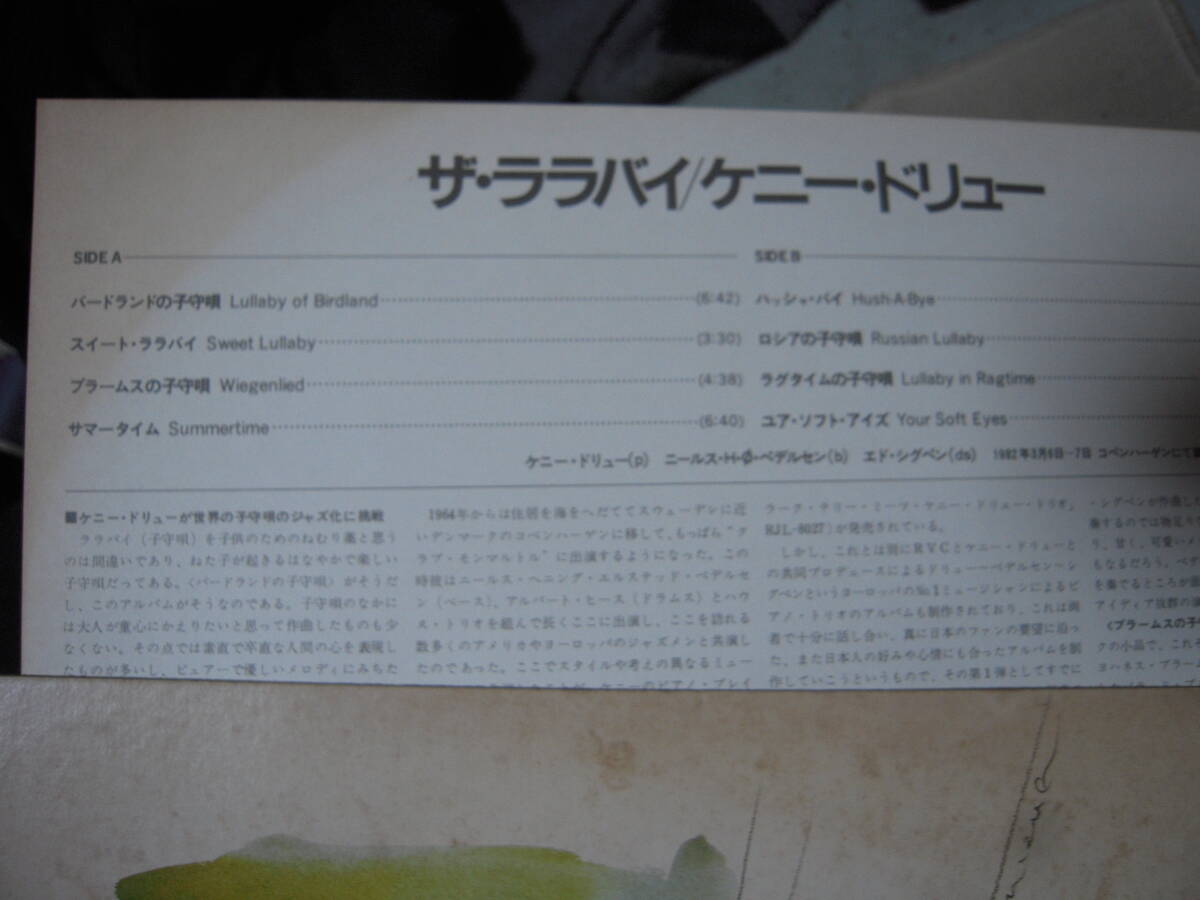 ザ・ララバイ/ケニー・ドリュー
SIDE A
バードランドの子守唄 Lullaby of Birdland (6:42)
スイート・ララバイ Sweet Lullaby (3:30)
ブラームスの子守唄 Wiegenlied (4:38)
サマータイム Summertime (6:40)
SIDE B
ハッシャ・バイ Hush-A-Bye
ロシアの子守唄 Russian Lullaby
ラグタイムの子守唄 Lullaby in Ragtime
ユア・ソフト・アイズ Your Soft Eyes
ケニー・ドリュー(p) ニールス・H・Ø・ペデルセン(b) エド・シグペン(ds) 1982年3月6日〜7日 コペンハーゲンにて
■ケニー・ドリューが世界の子守唄のジャズ化に挑戦
ララバイ（子守唄）を子供のためのねむり薬と思う
のは間違いであり、ねた子が起きるはなやかで楽しい
子守唄だってある。〈バードランドの子守唄〉がそうだ
し、このアルバムがそうなのである。子守唄のなかに
は大人が童心にかえりたいと思って作曲したものも少
なくない。その点では素直で卒直な人間の心を表現し
たものが多いし、ピュアーで優しいメロディにみちた
1964年からは住居を海をへだててスウェーデンに近
いデンマークのコペンハーゲンに移して、もっぱら“ク
ラブ・モンマルトル”に出演するようになった。この
時彼はニールス・ヘニング・エルステッド・ペデルセ
ン（ベース）、アルバート・ヒース（ドラムス）とハウ
ス・トリオを組んで長くここに出演し、ここを訪れる
数多くのアメリカやヨーロッパのジャズメンと共演し
たのであった。ここでスタイルや考えの異なるミュー
ケニーのピアノ・プレイ
ラーク・テリー・ミーツ・ケニー・ドリュー・トリオ」
RJL-8027）が発売されている。
しかし、これとは別にRVCとケニー・ドリューと
の共同プロデュースによるドリュー〜ペデルセン〜シ
グペンというヨーロッパのNo.1ミュージシャンによるピ
アノ・トリオのアルバムも制作されており、これは両
者で十分に話し合い、真に日本のファンの要望に沿っ
た、また日本人の好みや心情にも合ったアルバムを制
作していこうというもので、その第1弾としてすでに
・シグペンが作曲し
奏するのでは物足り
り、甘く、可愛いメ
もなるだろう。ペデ
を奏でるところが
アイディア抜群の演
〈ブラームスの子守
クの小品で、これ
ヨハネス・ブラー